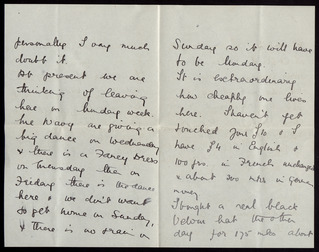 personally I very much
doubt it.
At present we are
thinking of leaving
here on Monday week.
The Navy are giving a
big dance on Wednesday
& there is a Fancy Dress
on Thursday then on
Friday there is the dance
here & we don't want
to get home on Sunday,
& there is no train on
Sunday so it will have
to be Monday.
It is extraordinary
how cheaply one lives
here. I haven't yet
touched your £4 & I
have £4 in English &
100 frs. in French unchanged
& about 300 mks in German
money
I bought a real black
Velour hat the other
day for 175 mks about